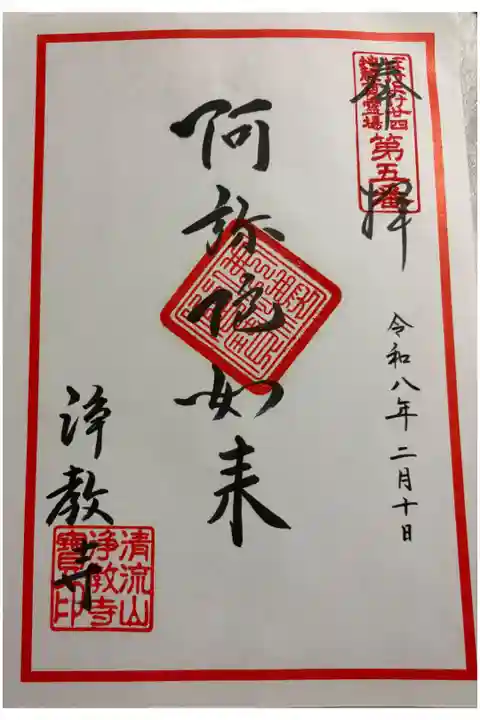 奉拝
第五番
令和八年二月十日
阿弥陀如来
浄教寺
清流山
浄教寺
寶印